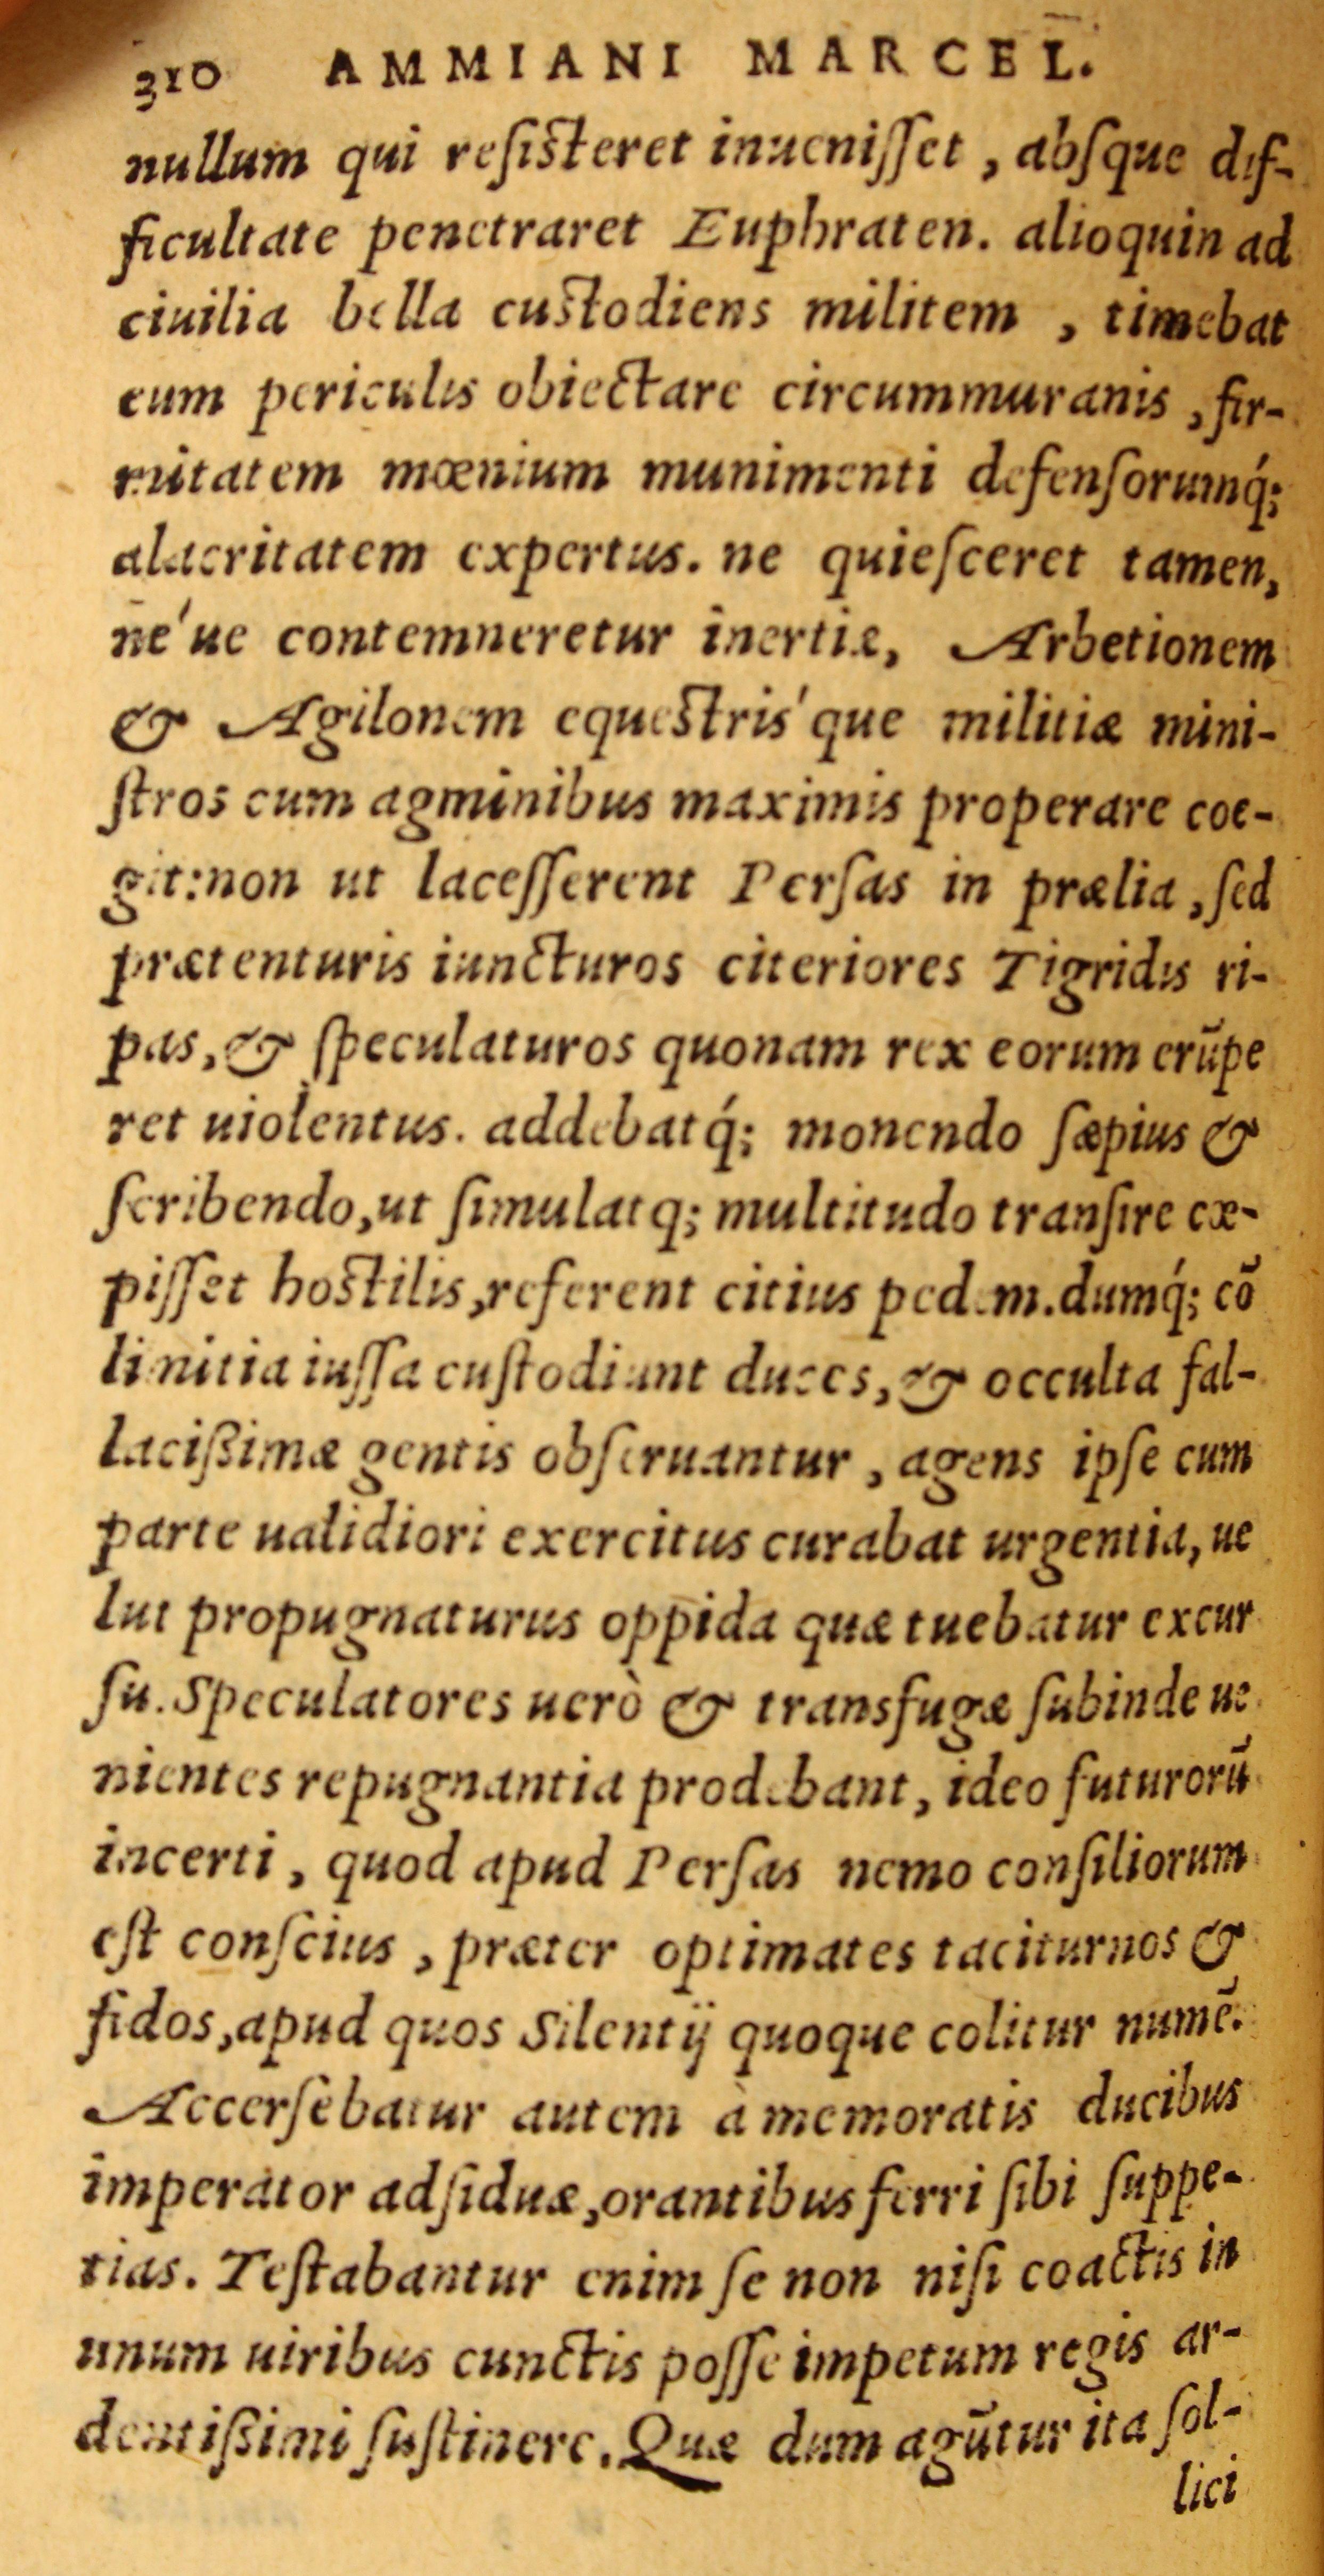 310 AMMIANI MARCEL.
nullum qui resisteret inuenisset, absque dif-
ficultate penetraret Euphraten. alioquin ad
ciuilia bella custodiens militem, timebat
eum periculis obiectare circummuranis, fir-
mitatem mœnium munimenti defensorumq́;
alacritatem expertus. ne quiesceret tamen,
né ue contemneretur inertiæ, Arbetionem
& Agilonem equestris'que militiæ mini-
stros cum agminibus maximis properare coe-
git:non ut lacesserent Persas in prælia, sed
prætenturis iuncturos citeriores Tigridis ri-
pas, & speculaturos quonam rex eorum erūpe
ret uiolentus. addebatq́; monendo sæpius &
scribendo, ut simulatq; multitudo transire cœ-
pisset hostilis, referent citius pedem. dumq́; cō
limitia iussa custodiunt duces, & occulta fal-
lacißimæ gentis obseruantur, agens ipse cum
parte ualidiori exercitus curabat urgentia, ue
lut propugnaturus oppida quæ tuebatur excur
su. Speculatores uerò & transfugæ subinde ue
nientes repugnantia prodebant, ideo futurorū
incerti, quod apud Persas nemo consiliorum
est conscius, præter optimates taciturnos &
fidos, apud quos Silentij quoque colitur numē.
Accersebatur autem à memoratis ducibus
imperator adsiduæ, orantibus ferri sibi suppe-
tias. Testabantur enim se non nisi coactis in
unum uiribus cunctis posse impetum regis ar-
dentißimi sustinere. Quæ dum agūtur ita sol-
lici